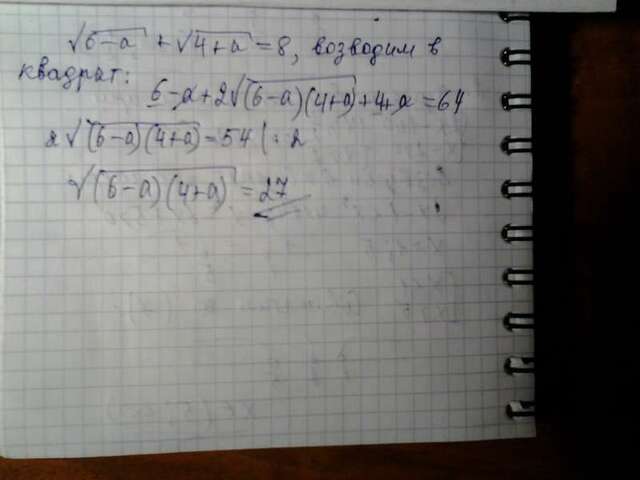 √(6-a) + √(4+a) = 8, возводим в
квадрат:
6-a+2√((6-a)(4+a))+4+a=64
2√((6-a)(4+a))=54 |:2
√((6-a)(4+a))=27